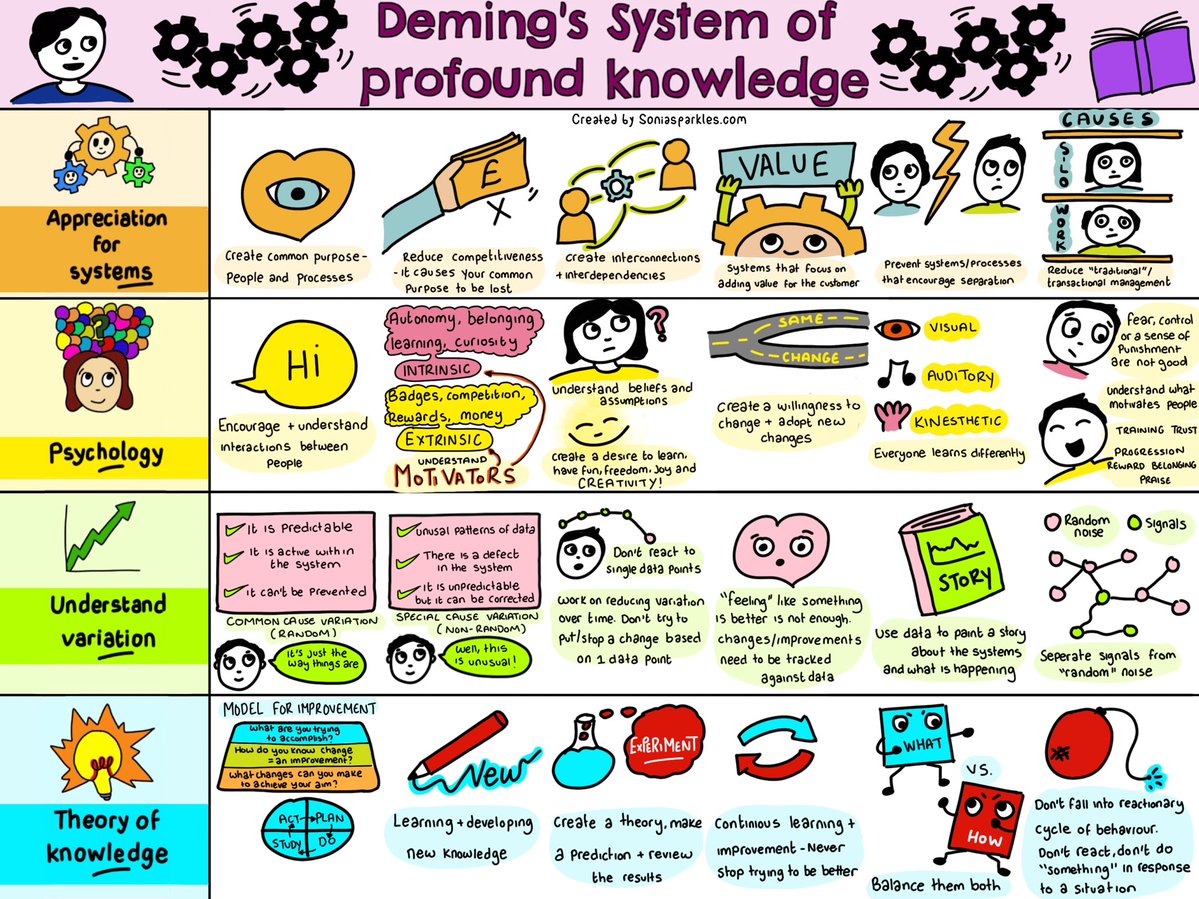 Deming's System of
profound knowledge
Created by Soniasparkles.com
Appreciation
for
systems
Create common purpose-
People and Processes
£
X
Reduce competitiveness
- it causes your common
Purpose to be lost
Create interconnections
+ interdependencies
VALUE
Systems that focus on
adding value for the customer
Prevent systems/processes
that encourage separation
CAUSES
SILO
WORK
Reduce "traditional"/
transactional management
?
Psychology
Hi
Encourage + understand
interactions between
People
Autonomy, belonging
learning, curiosity
INTRINSIC
Badges, competition,
Rewards, money
EXTRINSIC
UNDERSTAND
MOTIVATORS
?
understand beliefs and
assumptions
create a desire to learn,
have fun, freedom, joy and
CREATIVITY!
SAME
CHANGE
Create a willingness to
change + adopt new
changes
VISUAL
AUDITORY
KINESTHETIC
Everyone learns differently
Fear, control
or a sense of
Punishment
are not good
understand what
motivates people
TRAINING TRUST
PROGRESSION
REWARD BELONGING
PRAISE
Understand
variation
It is Predictable
It is active within
the system
it can't be Prevented
COMMON CAUSE VARIATION
(RANDOM)
It's just the
way things are
unusual patterns of data
There is a defect
in the system
It is unpredictable
but it can be corrected
SPECIAL CAUSE VARIATION
(NON-RANDOM)
Well, this
is unusual!
Don't react to
single data points
Work on reducing variation
over time. Don't try to
put/stop a change based
on 1 data point
"feeling" like something
is better is not enough.
changes/improvements
need to be tracked
against data
STORY
Use data to paint a story
about the systems
and what is happening
Random
noise
Signals
Seperate signals from
"random" noise
Theory of
knowledge
MODEL FOR IMPROVEMENT
What are you trying
to accomplish?
How do you know change
= an improvement?
What changes can you make
to achieve your aim?
ACT PLAN
STUDY DO
New
Learning + developing
new knowledge
EXPERIMENT
Create a theory, make
a prediction + review
the results
Continious learning +
improvement - Never
stop trying to be better
WHAT
VS.
HOW
Balance them both
Don't fall into reactionary
cycle of behaviour.
Don't react, don't do
"something" in response
to a situation